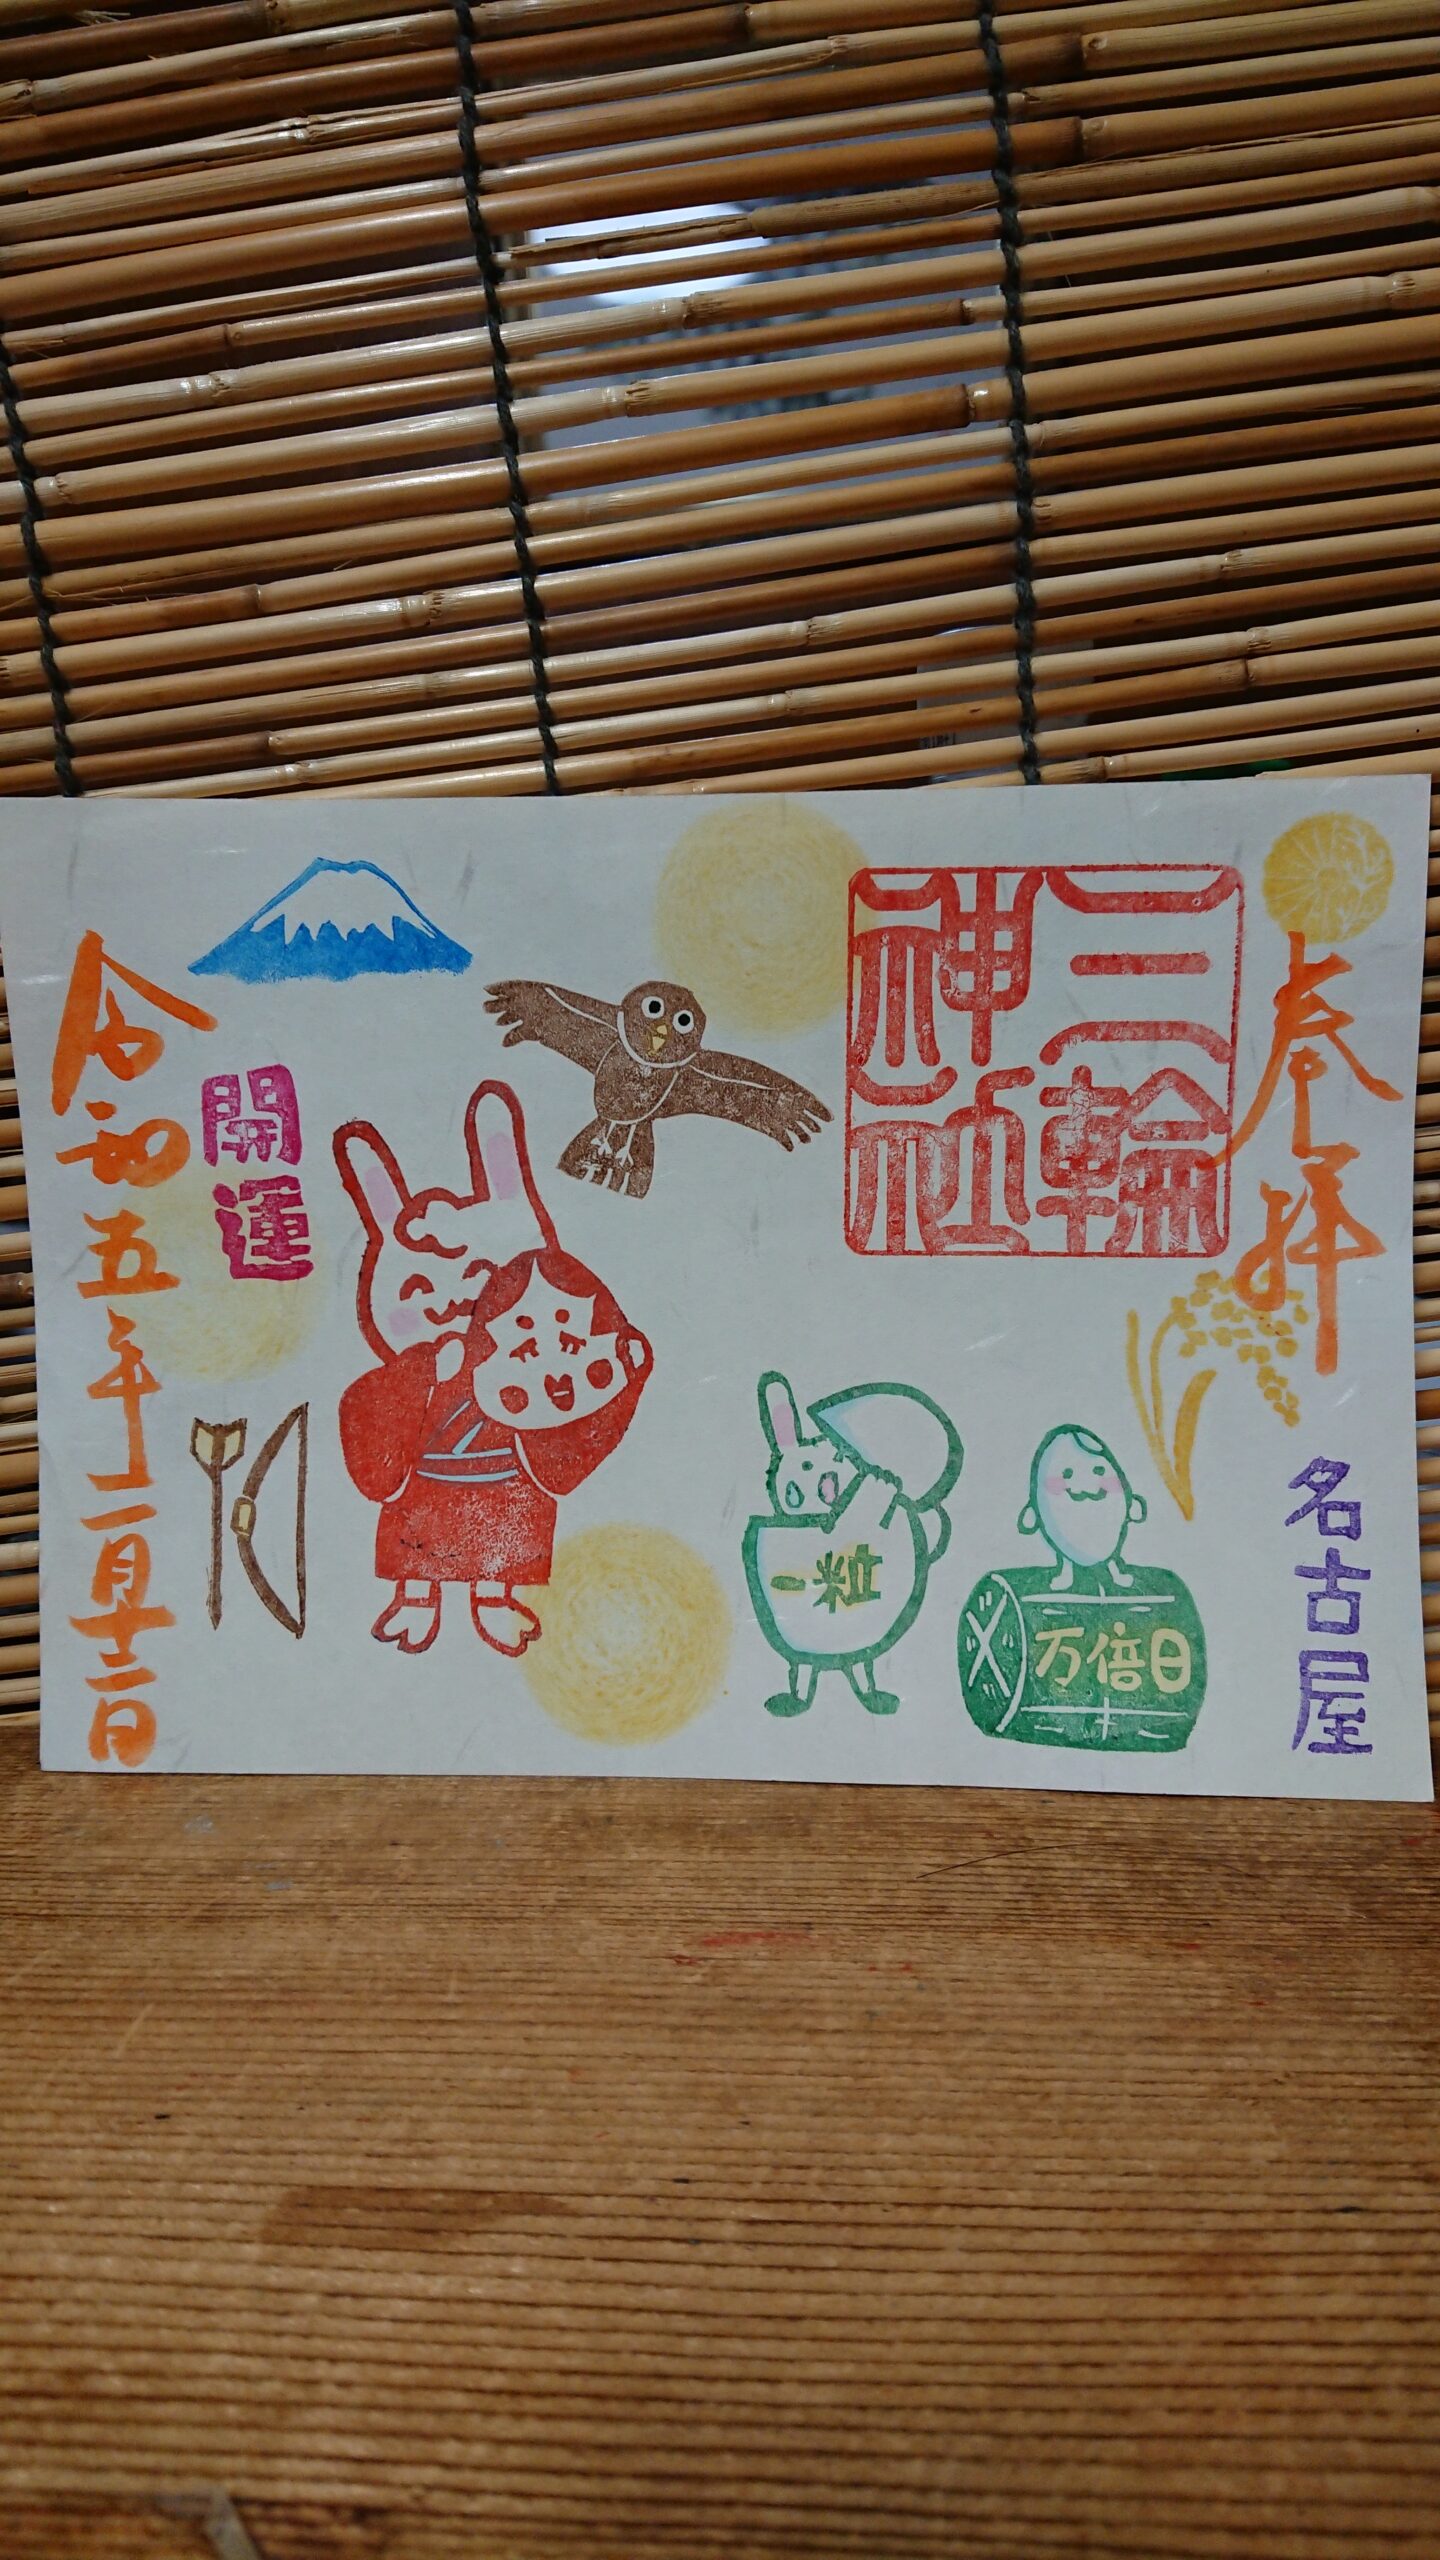 奉拝
名古屋
三輪
神社
一粒
万倍日
開運
令和五年一月十二日